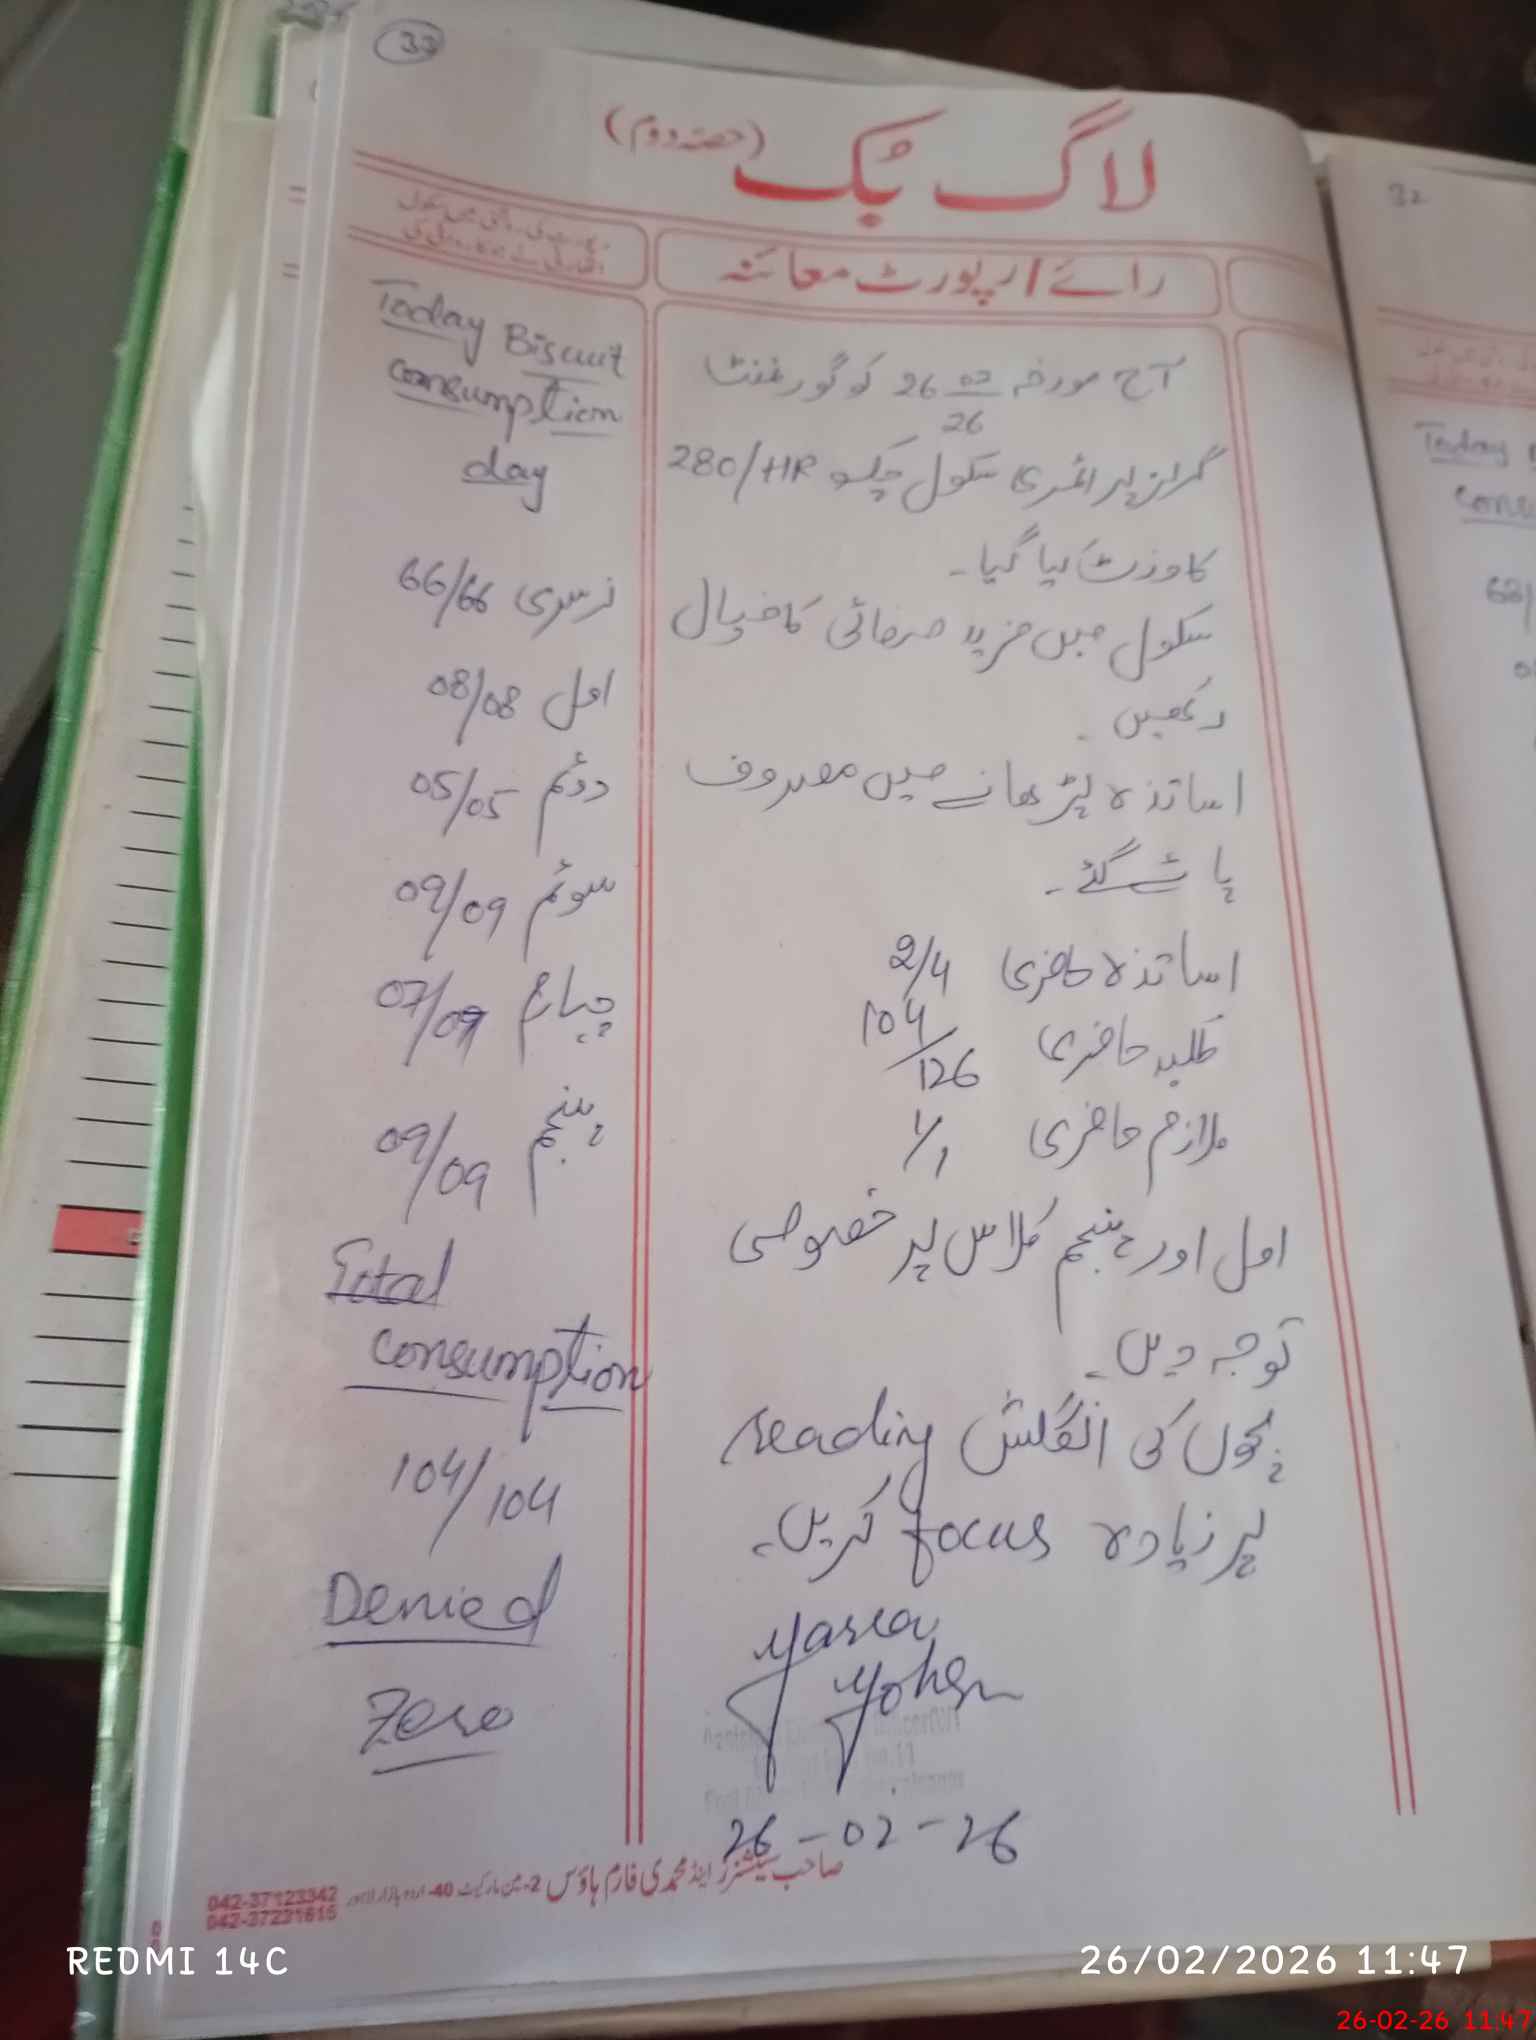 33
لاگ بک (حصہ دوم)
رائے / رپورٹ معائنہ
آج مورخہ 26 02/26 کو گورنمنٹ
گرلز پرائمری سکول چک 280/HR
کا وزٹ کیا گیا۔
سکول میں مزید صفائی کا خیال
رکھیں۔
اساتذہ پڑھانے میں مصروف
پائے گئے۔
اساتذہ حاضری 2/4
طلبہ حاضری 104/126
ملازم حاضری 1/1
اول اور پنجم کلاس پر خصوصی
توجہ دیں۔
بچوں کی انگلش reading
پر زیادہ focus کریں۔
26-02-26
Today Biscuit
consumption
day
نرسری 66/66
اول 08/08
دوئم 05/05
سوئم 09/09
چہارم 07/07
پنجم 09/09
Total
consumption
104/104
Denied
Zero
صاحب سٹیشنرز اینڈ محمدی فارم ہاؤس 2-مین مارکیٹ 40-اردو بازار لاہور
042-37123342
042-37231815
32
Today
REDMI 14C
26/02/2026 11:47
26-02-26 11:47